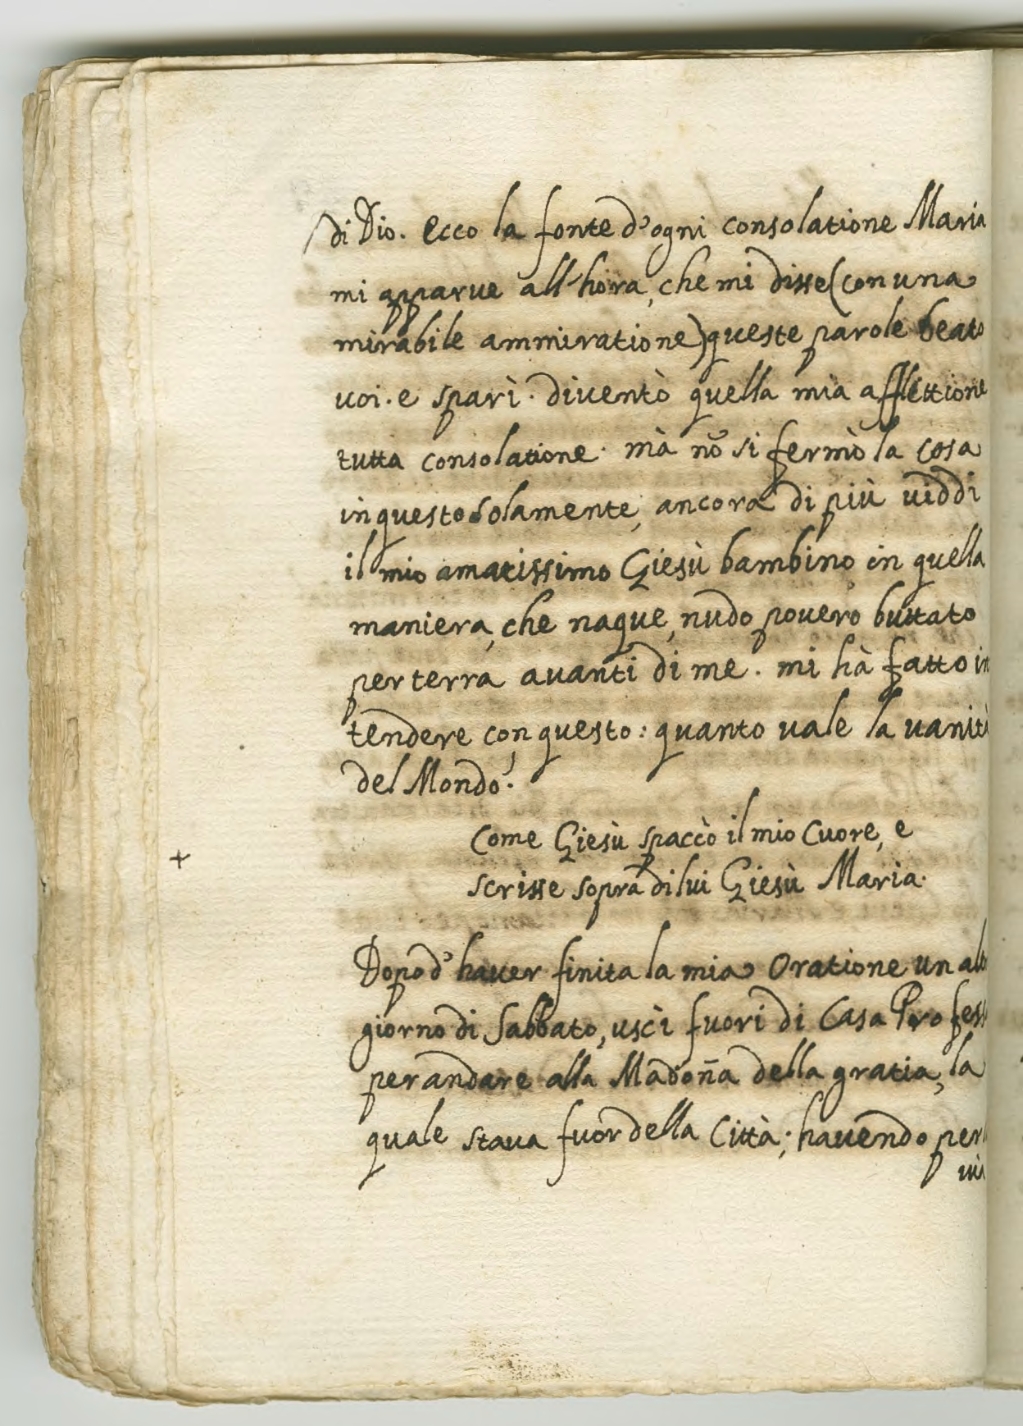 di Dio. Ecco la fonte d'ogni consolatione Maria
mi apparue all'hora, che mi disse (con una
mirabile ammiratione) queste parole beato
uoi. e sparì. diuentò quella mia afflittione
tutta consolatione. mà nõ si fermò la cosa
in questo solamente, ancora di più uiddi
il mio amatissimo Giesù bambino in quella
maniera, che naque, nudo pouero buttato
per terra auanti di me. mi hà fatto in
tendere con questo: quanto uale la uanità
del Mondo.
Come Giesù spaccò il mio Cuore, e
scrisse sopra di lui Giesù Maria.
+
Dopo d'hauer finita la mia Oratione un alt
giorno di Sabbato, uscì fuori di Casa Profess
per andare alla Madoña della gratia, la
quale staua fuor della Città; hauendo per